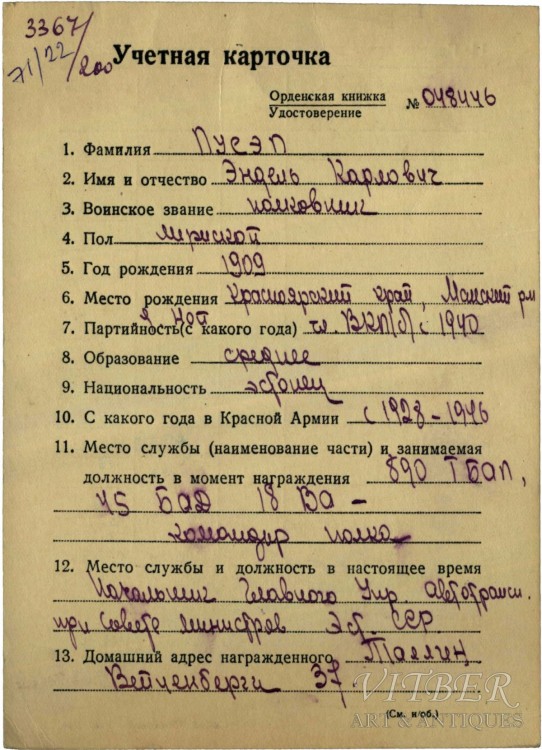 3367/
71/22/200
Учетная карточка
Орденская книжка
Удостоверение
№ 048446
1. Фамилия Пусэп
2. Имя и отчество Эндель Карлович
3. Воинское звание полковник
4. Пол мужской
5. Год рождения 1909
6. Место рождения Красноярский край, Манский р-н
7. Партийность (с какого года) чл. ВКП(б) с 1940
8. Образование среднее
9. Национальность эстонец
10. С какого года в Красной Армии с 1928-1946
11. Место службы (наименование части) и занимаемая
должность в момент награждения 890 ТБАП,
45 БАД 18 ВА -
командир полка
12. Место службы и должность в настоящее время
Начальник Главного Упр. автотрансп.
при Совете министров Эст. ССР.
13. Домашний адрес награжденного Таллин,
Вейценберги 37.
(См. н/об.)
VITBER
ART & ANTIQUES